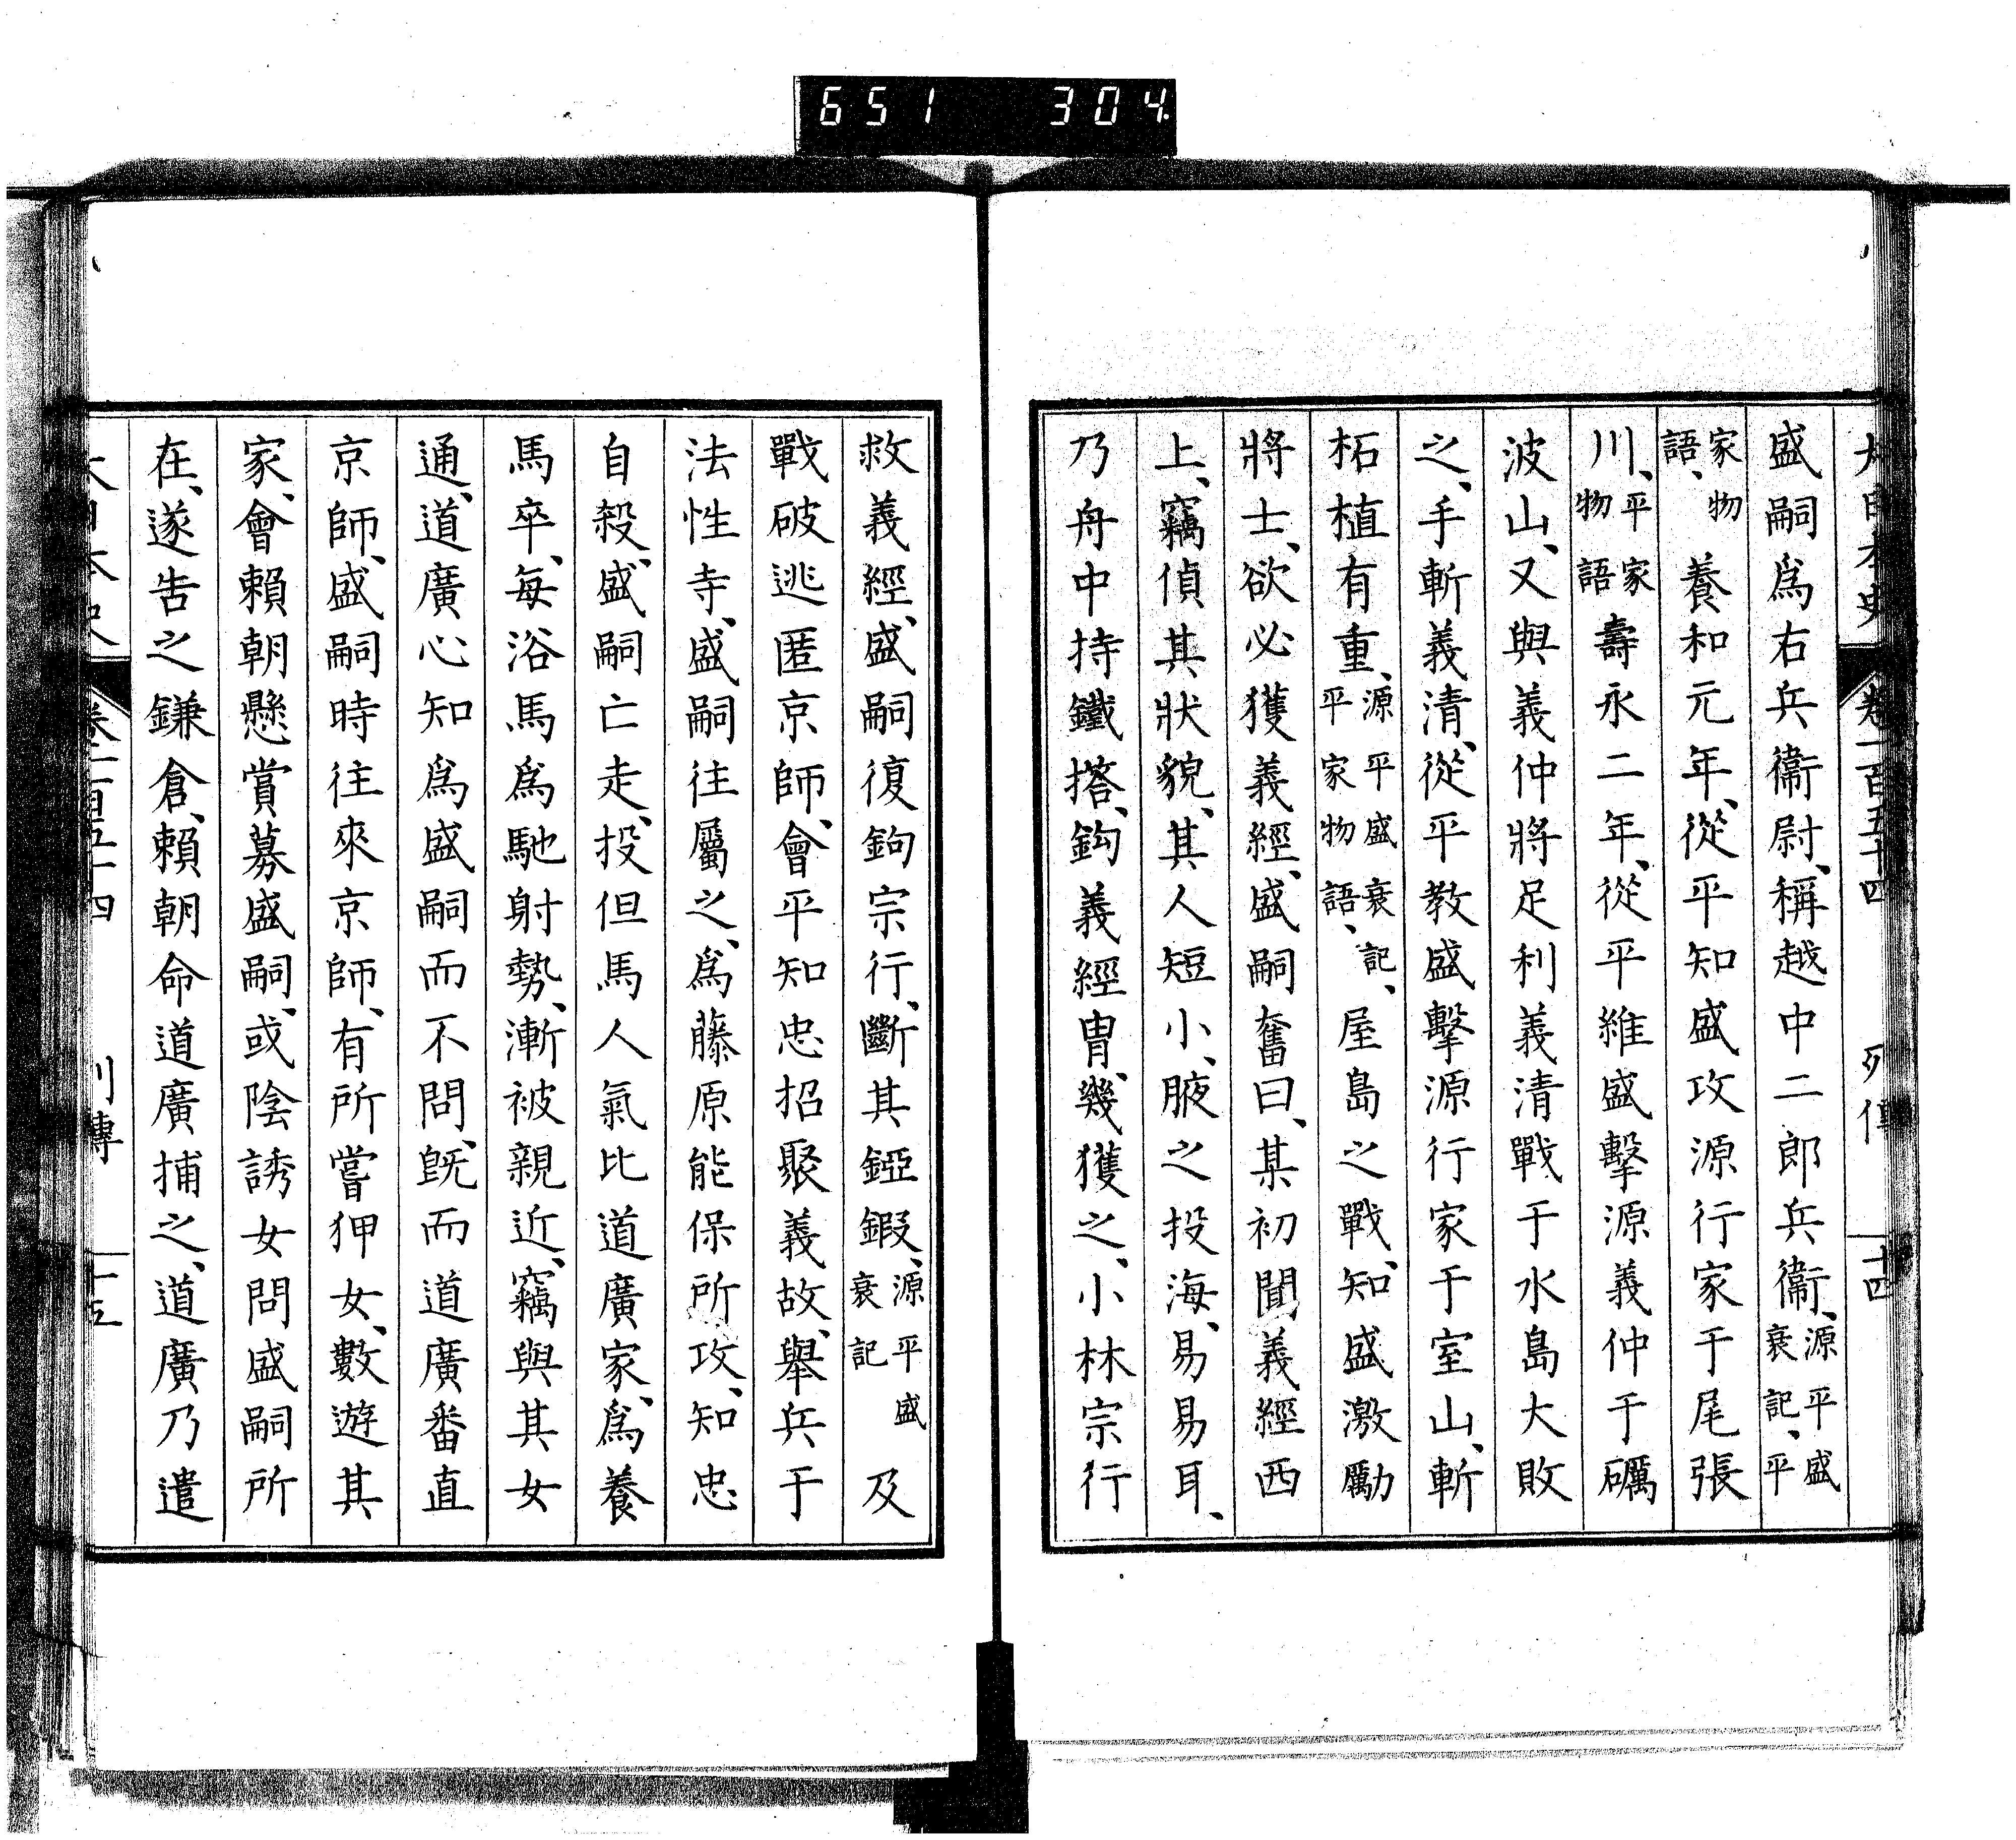 651 304
大日本史 卷一百五十四 列傳 十四
盛嗣爲右兵衞尉、稱越中二郎兵衞、源平盛衰記、平
家物語、養和元年、從平知盛攻源行家于尾張
川、平家物語壽永二年、從平維盛擊源義仲于礪
波山、又與義仲將足利義清戰于水島大敗
之、手斬義清、從平教盛擊源行家于室山、斬
柘植有重、源平盛衰記、平家物語、屋島之戰、知盛激勵
將士、欲必獲義經、盛嗣奮曰、某初聞義經西
上、竊偵其狀貌、其人短小、腋之投海、易易耳、
乃舟中持鐵搭、鈎義經冑、幾獲之、小林宗行
救義經、盛嗣復鉤宗行、斷其錏鍜、源平盛衰記及
戰破逃匿京師、會平知忠招聚義故、舉兵于
法性寺、盛嗣往屬之、爲藤原能保所攻、知忠
自殺、盛嗣亡走、投但馬人氣比道廣家、爲養
馬卒、每浴馬爲馳射勢、漸被親近、竊與其女
通、道廣心知爲盛嗣而不問、旣而道廣番直
京師、盛嗣時往來京師、有所嘗狎女、數遊其
家、會賴朝懸賞募盛嗣、或陰誘女問盛嗣所
在、遂告之鎌倉、賴朝命道廣捕之、道廣乃遣
大日本史 卷一百五十四 列傳 十五